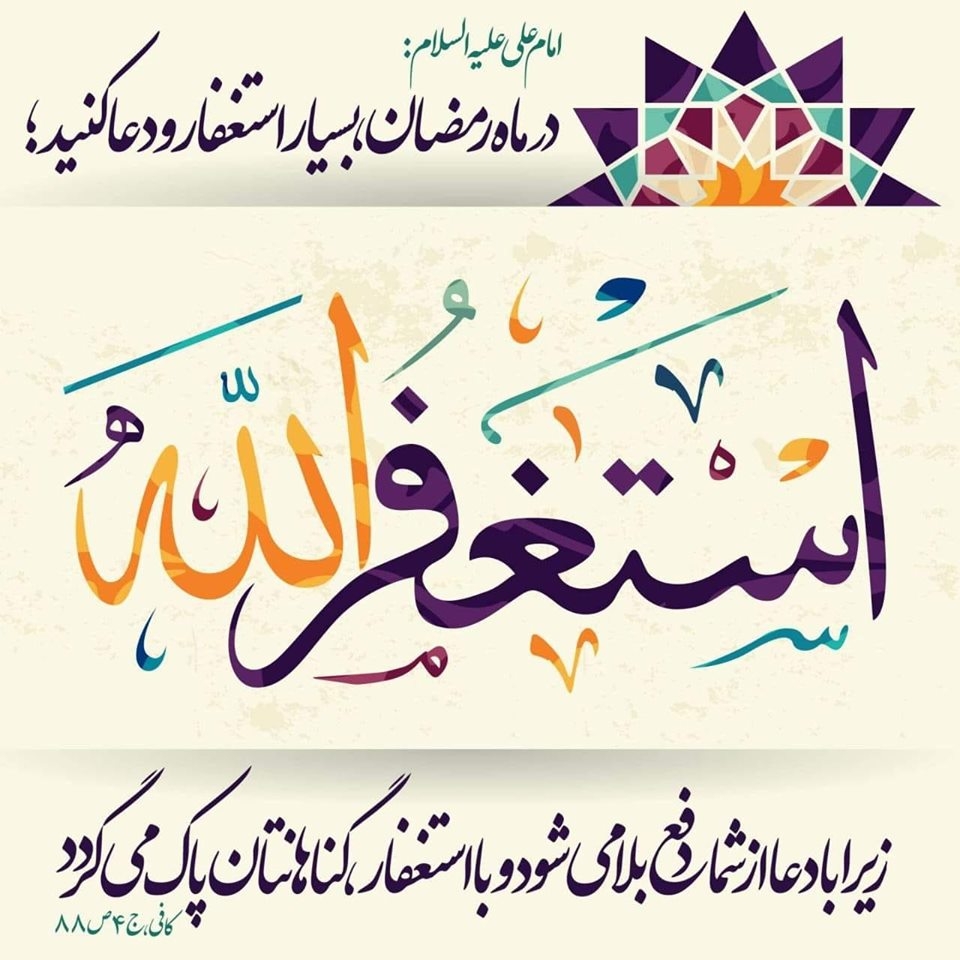 امام علی علیه السلام:
در ماه رمضان، بسیار استغفار و دعا کنید؛
استغفر الله
زیرا با دعا از شما دفع بلا می شود و با استغفار، گناهانتان پاک می گردد
کافی، ج ۴ ص ۸۸